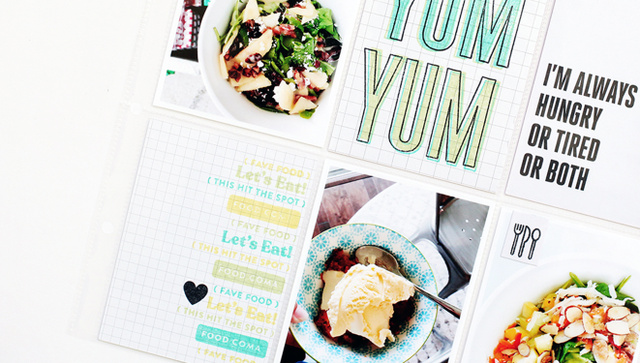 YUM
YUM
I'M ALWAYS
HUNGRY
OR TIRED
OR BOTH
FAVE FOOD
Let's Eat!
(THIS HIT THE SPOT)
FOOD COMA
(FAVE FOOD)
Let's Eat!
(THIS HIT THE SPOT)
FOOD COMA
(FAVE FOOD)
Let's Eat!
(THIS HIT THE SPOT)
FOOD COMA
(FAVE FOOD)